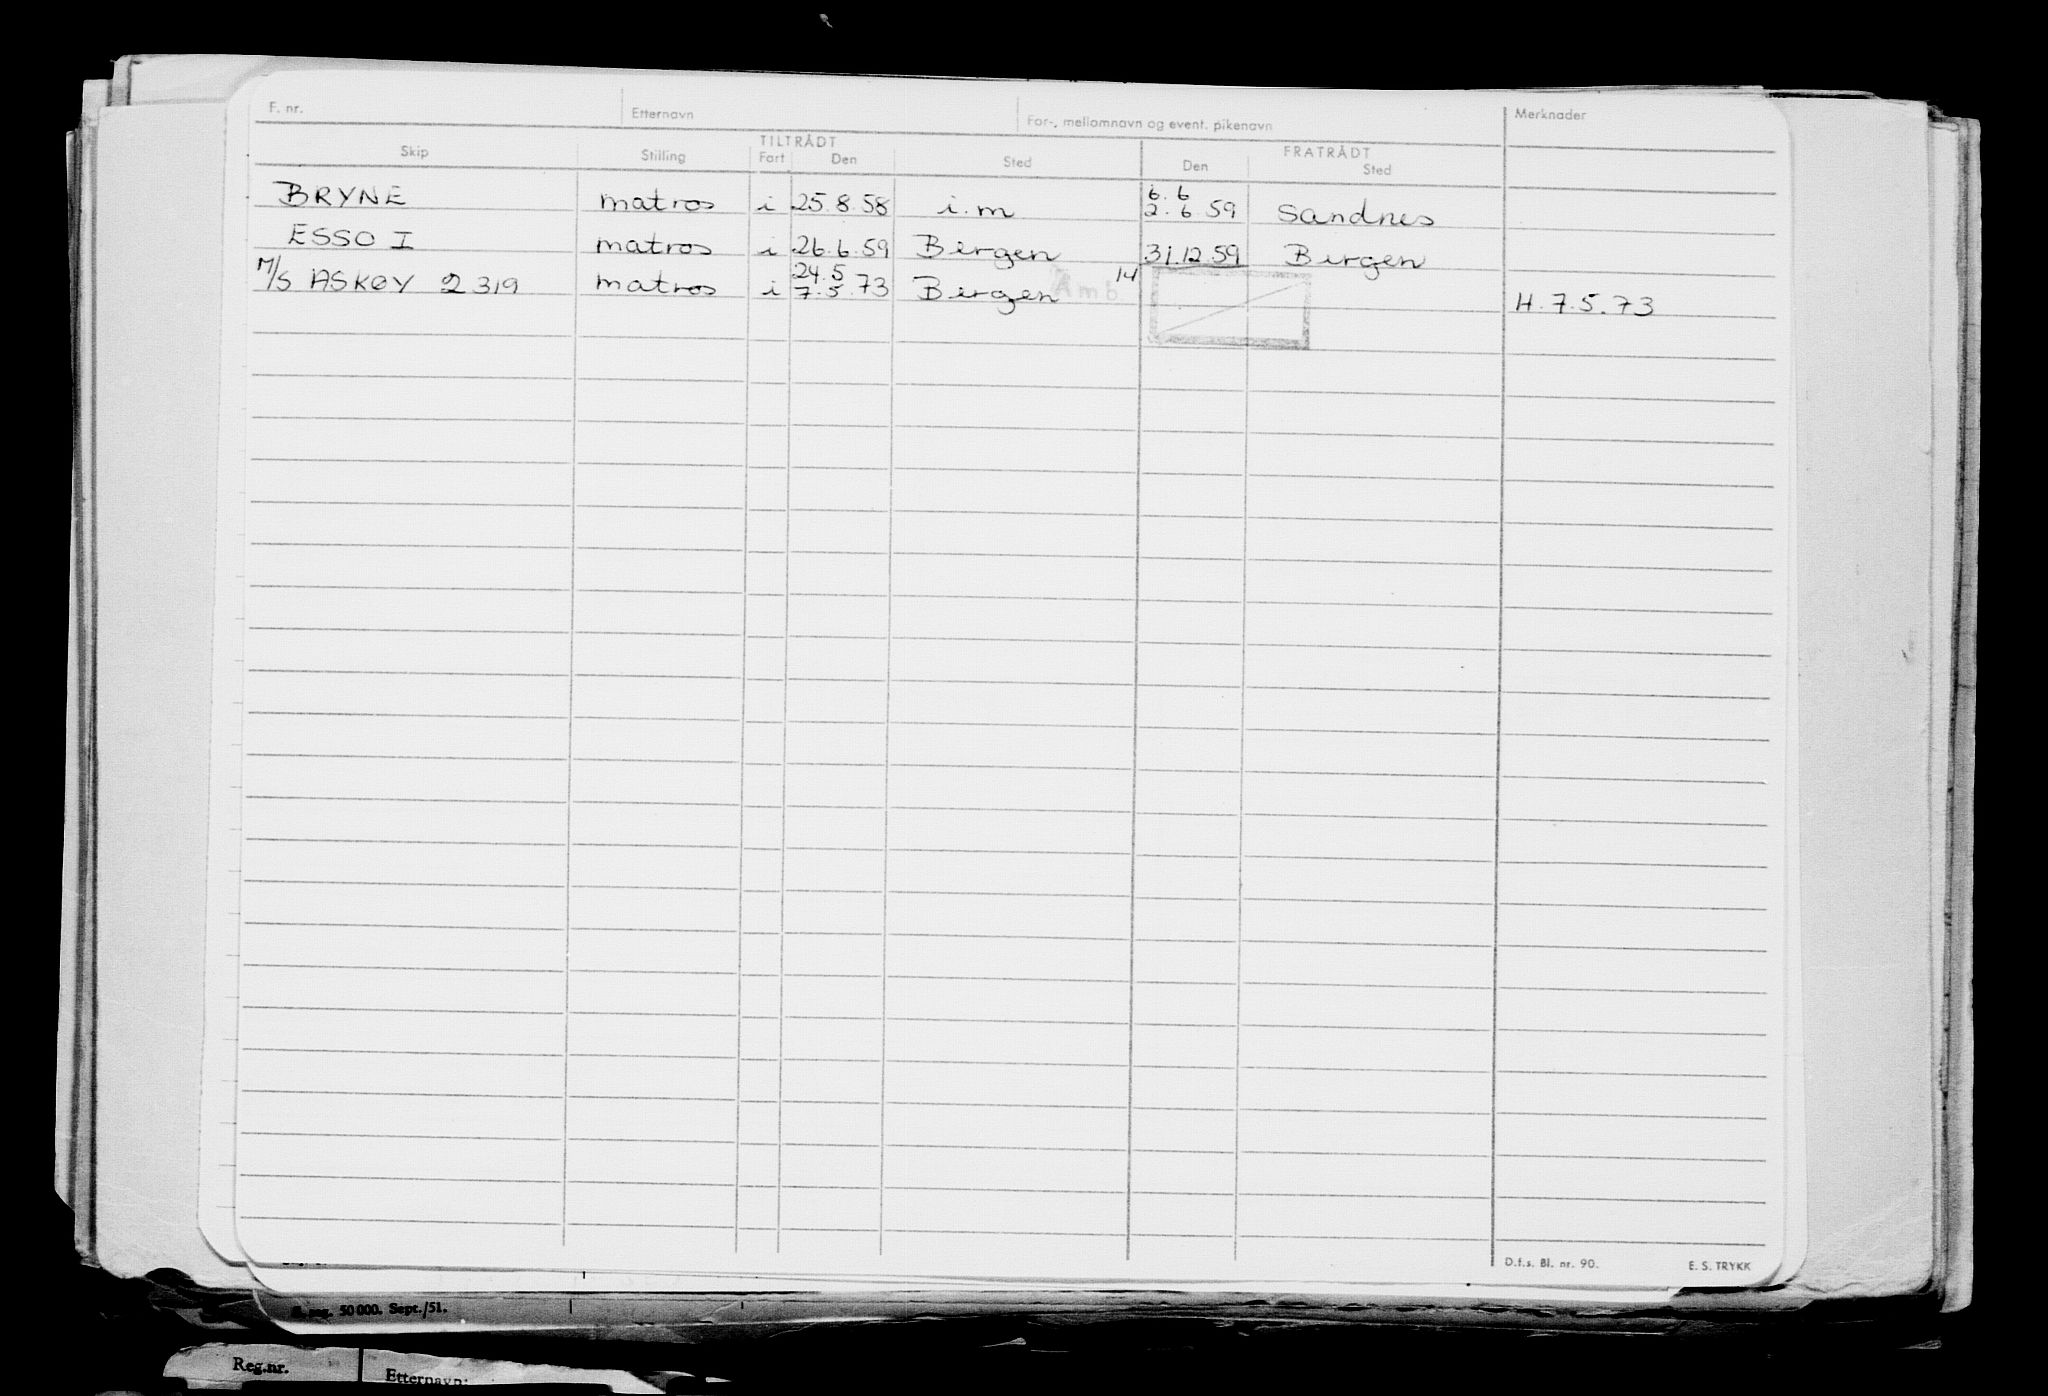 F. nr. Etternavn For-, mellomnavn og event. pikenavn Merknader
TILTRÅDT FRATRÅDT
Skip Stilling Fart Den Sted Den Sted
6.6
BRYNE matros i 25.8.58 i.m 2.6.59 Sandnes
ESSO I matros i 26.6.59 Bergen 31.12.59 Bergen
24.5 14
M/S ASKØY 2 319 matros i 7.5.73 Bergen Amb H.7.5.73
D.f.s. Bl. nr. 90. E. S. TRYKK
50 000. Sept./51.
Reg.nr. Etternavn: